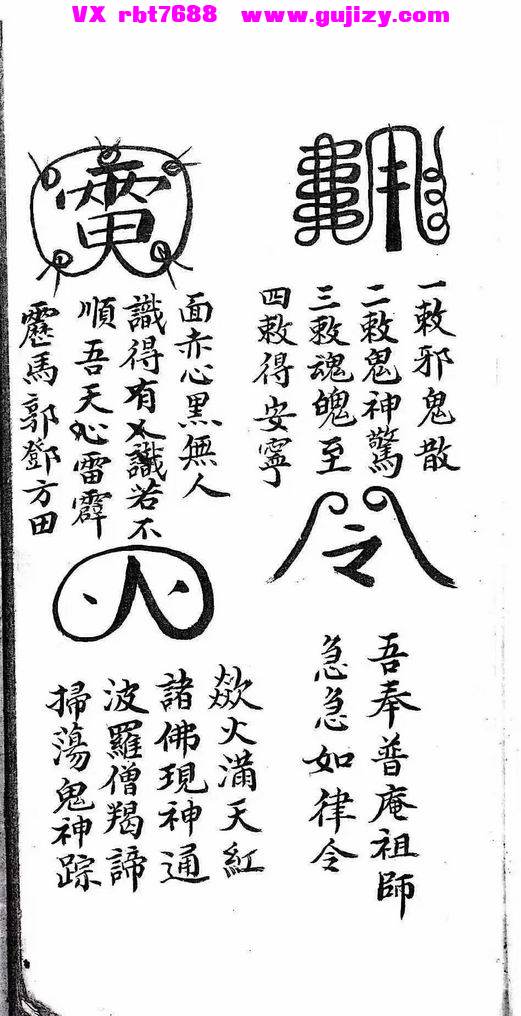 VX rbt7688 www.gujizy.com
一敕邪鬼散
二敕鬼神驚
三敕魂魄至
四敕得安寧
令
吾奉普庵祖師
急急如律令
面赤心黑無人
識得有人識若不
順吾天心雷霹
靂馬郭鄧方田
火
歘火滿天紅
諸佛現神通
波羅僧羯諦
掃蕩鬼神踪